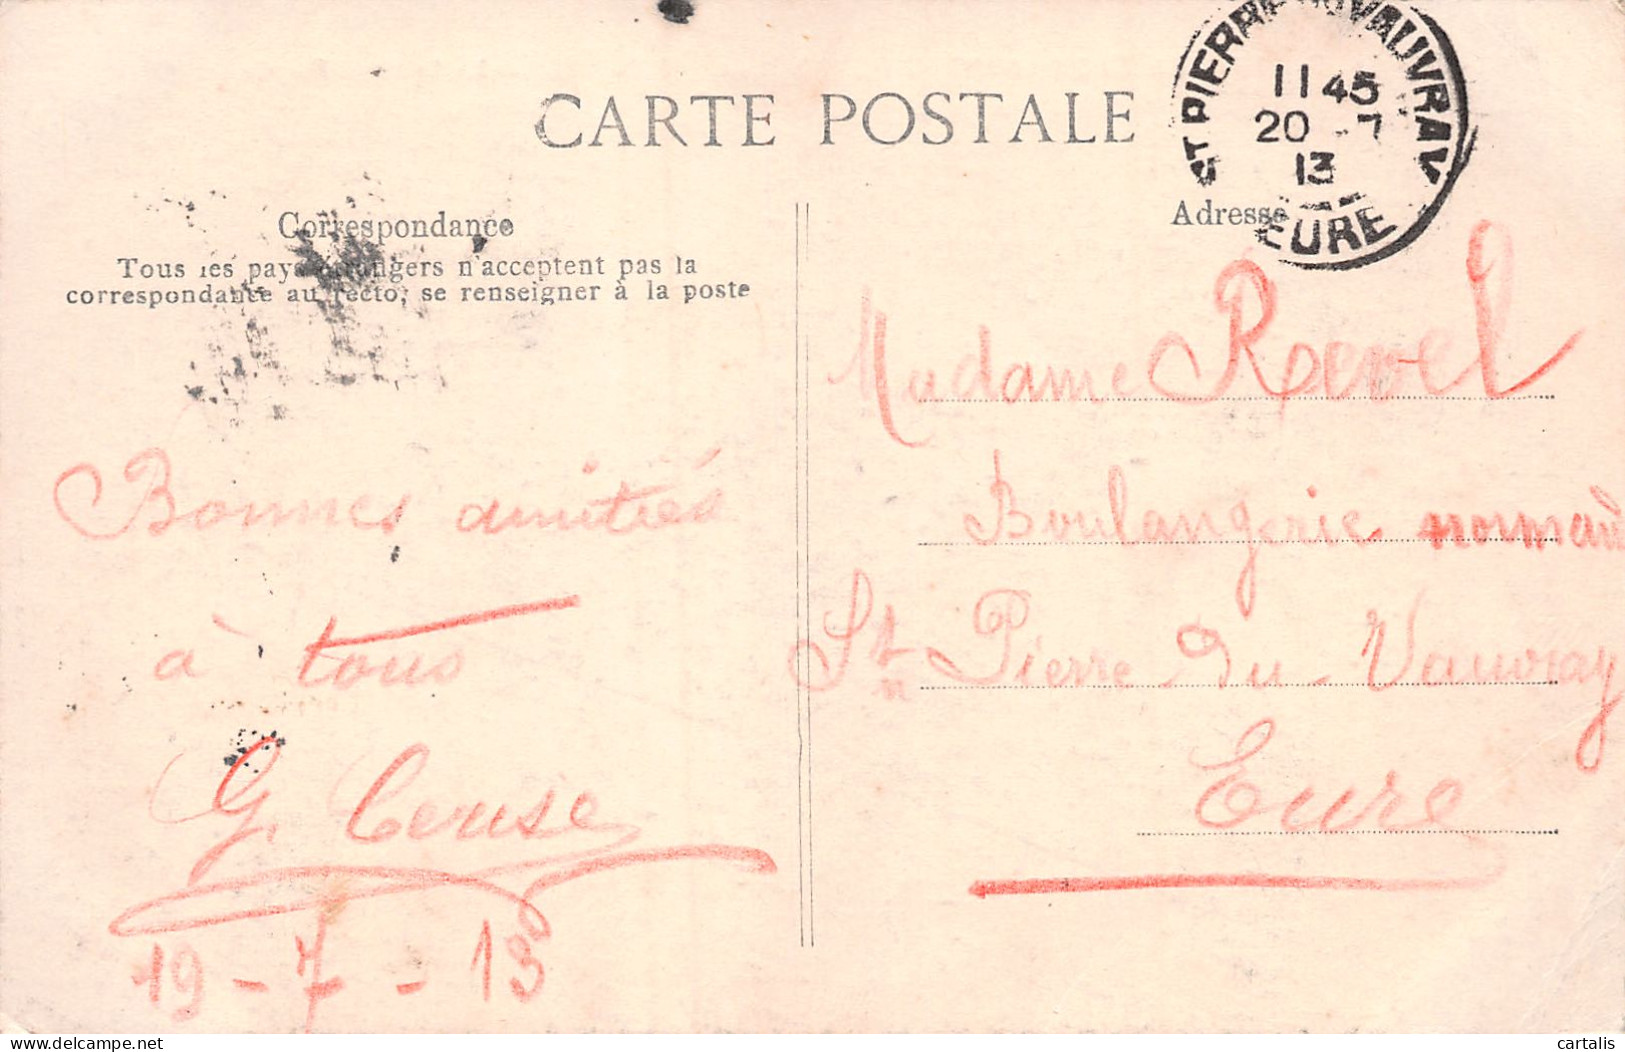 CARTE POSTALE
ST PIERRE DU VAUVRAY
11 45
20 - 7
13
EURE
Correspondance
Tous les pays étrangers n'acceptent pas la
correspondance au recto, se renseigner à la poste
Adresse
Bonnes amitiés
à tous
19-7-13
Madame Revel
Boulangerie normand
St Pierre du Vauvray
Eure
delcampe.net
cartalis